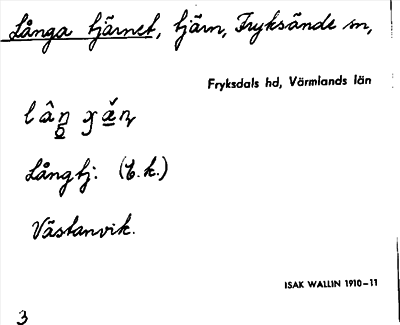 Långa tjärnet, tjärn, Fryksände sn,
Fryksdals hd, Värmlands län
Långtj. (t.k.)
Västanvik.
ISAK WALLIN 1910-11
3